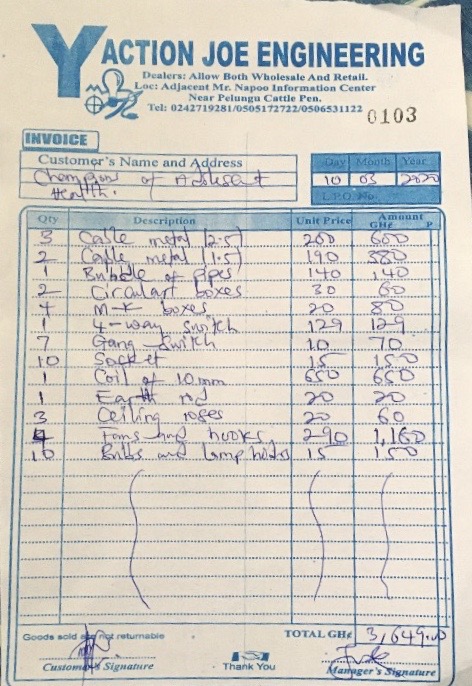 Y ACTION JOE ENGINEERING
Dealers: Allow Both Wholesale And Retail.
Loc: Adjacent Mr. Napoo Information Center
Near Pelungu Cattle Pen.
Tel: 0242719281/0505172722/0506531122
0103
INVOICE
Customer's Name and Address
Day Month Year
Champions of Adolescent
10 03 2020
Health.
L.P.O. No.
Qty Description Unit Price Amount
GH¢ P
3 Calle metal (2.5) 200 600
2 Calle metal (1.5) 190 380
1 Bundle of pipes 140 140
2 Circulart boxes 30 60
4 M-K boxes 20 80
1 4-way switch 129 129
7 Gang switch 10 70
10 Socket 15 150
1 Coil of 10mm 650 650
1 Earth rod 20 20
3 Ceiling roses 20 60
4 Fans and hooks 290 1,160
10 Bulbs and lamp holds 15 150
Goods sold are not returnable
TOTAL GH¢ 3,649.00
Customer's Signature
Thank You
Manager's Signature